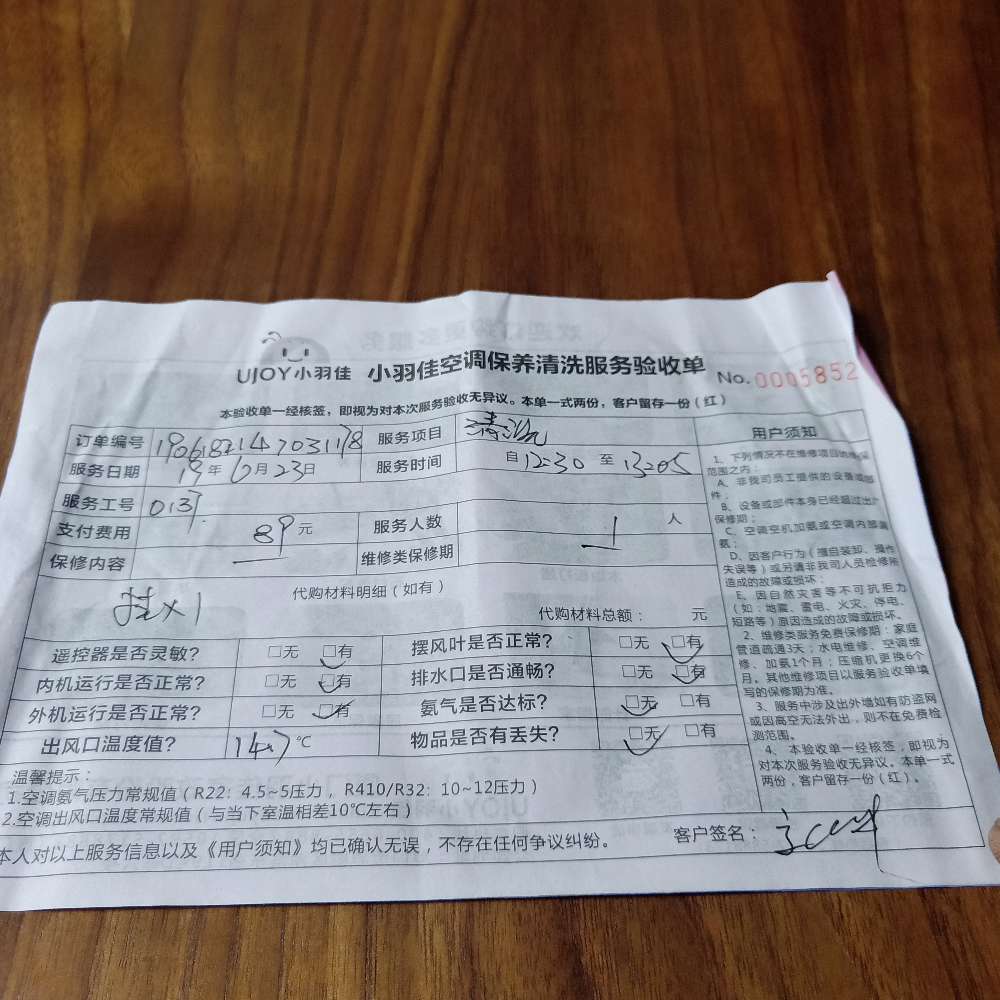 UJOY小羽佳 小羽佳空调保养清洗服务验收单 No.0005852
本验收单一经核签，即视为对本次服务验收无异议。本单一式两份，客户留存一份（红）
订单编号 1906182147031178 服务项目 清洗
服务日期 19年6月23日 服务时间 自12:30至13:05
服务工号 0137
支付费用 89元 服务人数 1人
保修内容 — 维修类保修期
代购材料明细（如有）
挂x1
代购材料总额： 元
遥控器是否灵敏? □无 □有 摆风叶是否正常? □无 □有
内机运行是否正常? □无 □有 排水口是否通畅? □无 □有
外机运行是否正常? □无 □有 氨气是否达标? □无 □有
出风口温度值? 14.7℃ 物品是否有丢失? □无 □有
温馨提示：
1.空调氨气压力常规值（R22：4.5~5压力，R410/R32：10~12压力）
2.空调出风口温度常规值（与当下室温相差10℃左右）
本人对以上服务信息以及《用户须知》均已确认无误，不存在任何争议纠纷。 客户签名：
用户须知
1、下列情况不在维修项目的
范围之内：
A、非我司员工提供的设备或部
件；
B、设备或部件本身已经超过出厂
保修期；
C、空调空机加氨或空调内部漏
氨；
D、因客户行为（擅自装卸、操作
失误等）或另请非我司人员检修所
造成的故障或损坏；
E、因自然灾害等不可抗拒力
（如：地震、雷电、火灾、停电、
短路等）原因造成的故障或损坏。
2、维修类服务免费保修期：家庭
管道疏通3天；水电维修、空调维
修、加氨1个月；压缩机更换6个
月。其他维修项目以服务验收单填
写的保修期为准。
3、服务中涉及出外墙如有防盗网
或因高空无法外出，则不在免费检
测范围。
4、本验收单一经核签，即视为
对本次服务验收无异议。本单一式
两份，客户留存一份（红）。